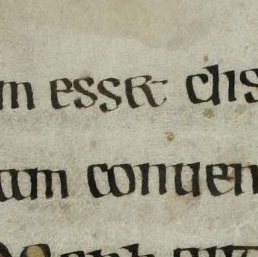 m esset dis
am conuen